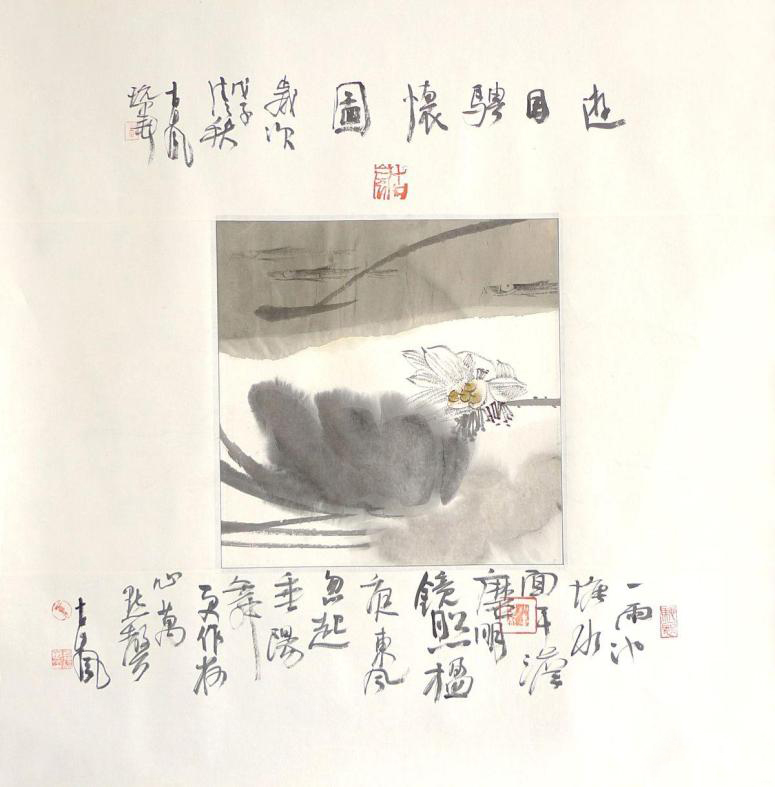 遊目騁懷圖
歲次
戊子
清秋
古風
一雨池
塘水
面平淡
磨明
鏡照
東風
忽起
垂陽
舞
更作荷
心萬
點聲
古風